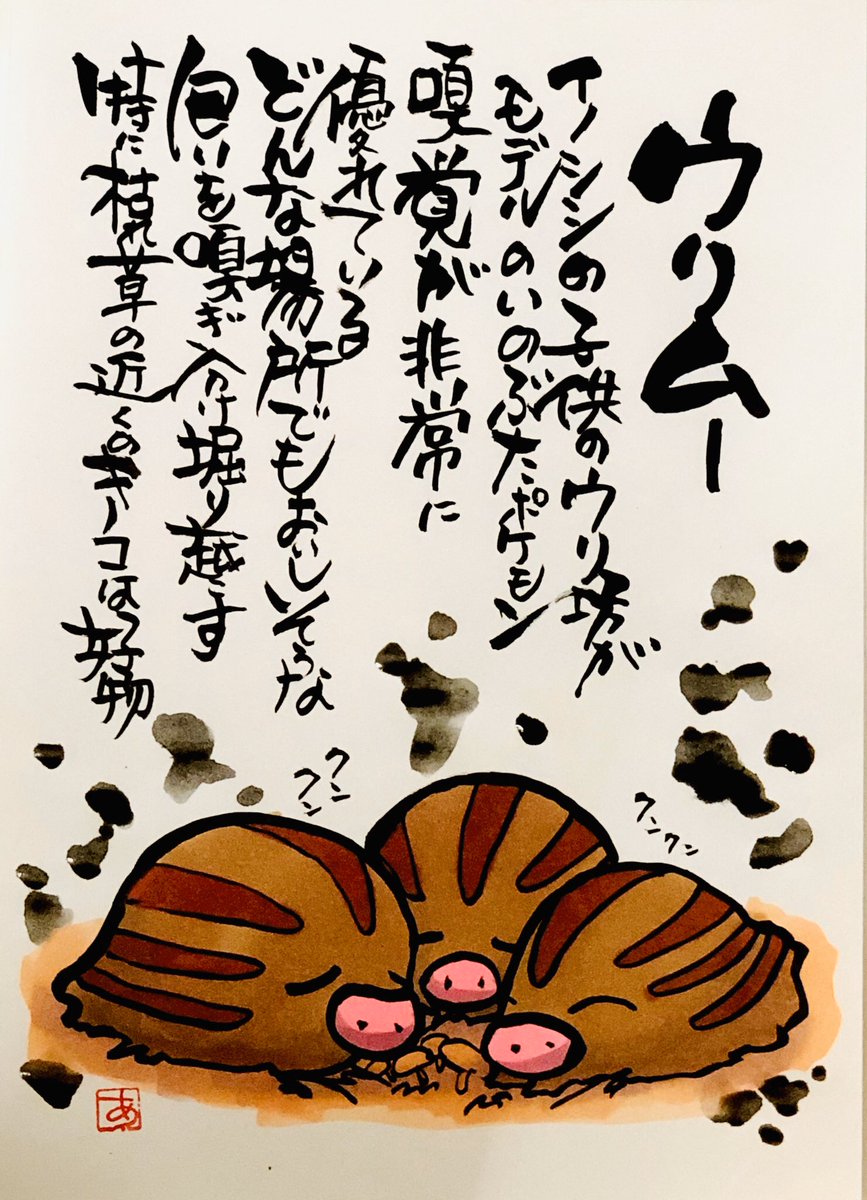 ウリムー
イノシシの子供のウリ坊が
モデルのいのぶたポケモン
嗅覚が非常に
優れている
どんな場所でもおいしそうな
匂いを嗅ぎ分け掘り越す
特に枯れ草の近くのキノコは好物
クンクン
クンクン
あ